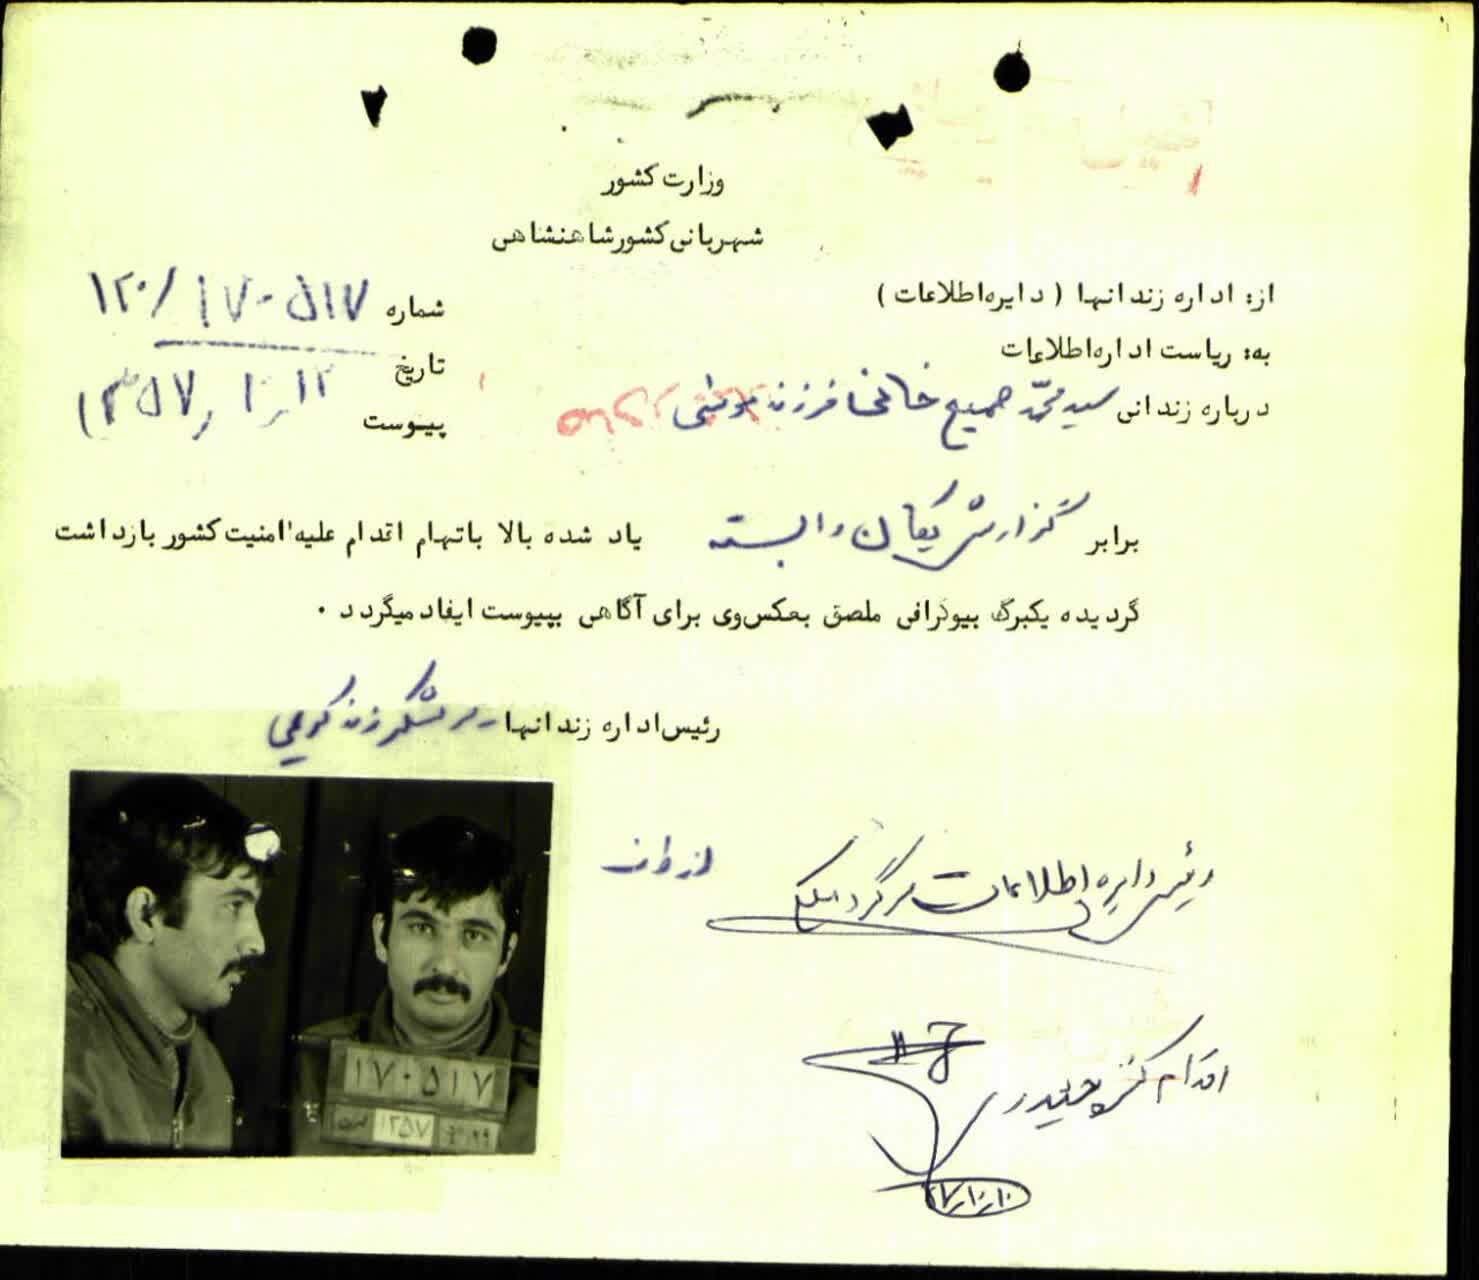 وزارت کشور
شهربانی کشور شاهنشاهی
از: اداره زندانها ( دایره اطلاعات )
شماره ۱۲۰/۱۷۰۵۱۷
به: ریاست اداره اطلاعات
تاریخ ۱۳۵۷٫۱۰٫۱۲
درباره زندانی سید محمد صمیع خانی فرزند موسی
پیوست
برابر گزارش یگان وابسته یاد شده بالا باتهام اقدام علیه امنیت کشور بازداشت
گردیده یکبرگ بیوگرافی ملصق بعکس وی برای آگاهی بپیوست ایفاد میگردد .
رئیس اداره زندانها سرلشگر زند کریمی
از طرف
رئیس دایره اطلاعات سرگرد
اقدام کننده حیدری
۱۷۰۵۱۷
۱۳۵۷